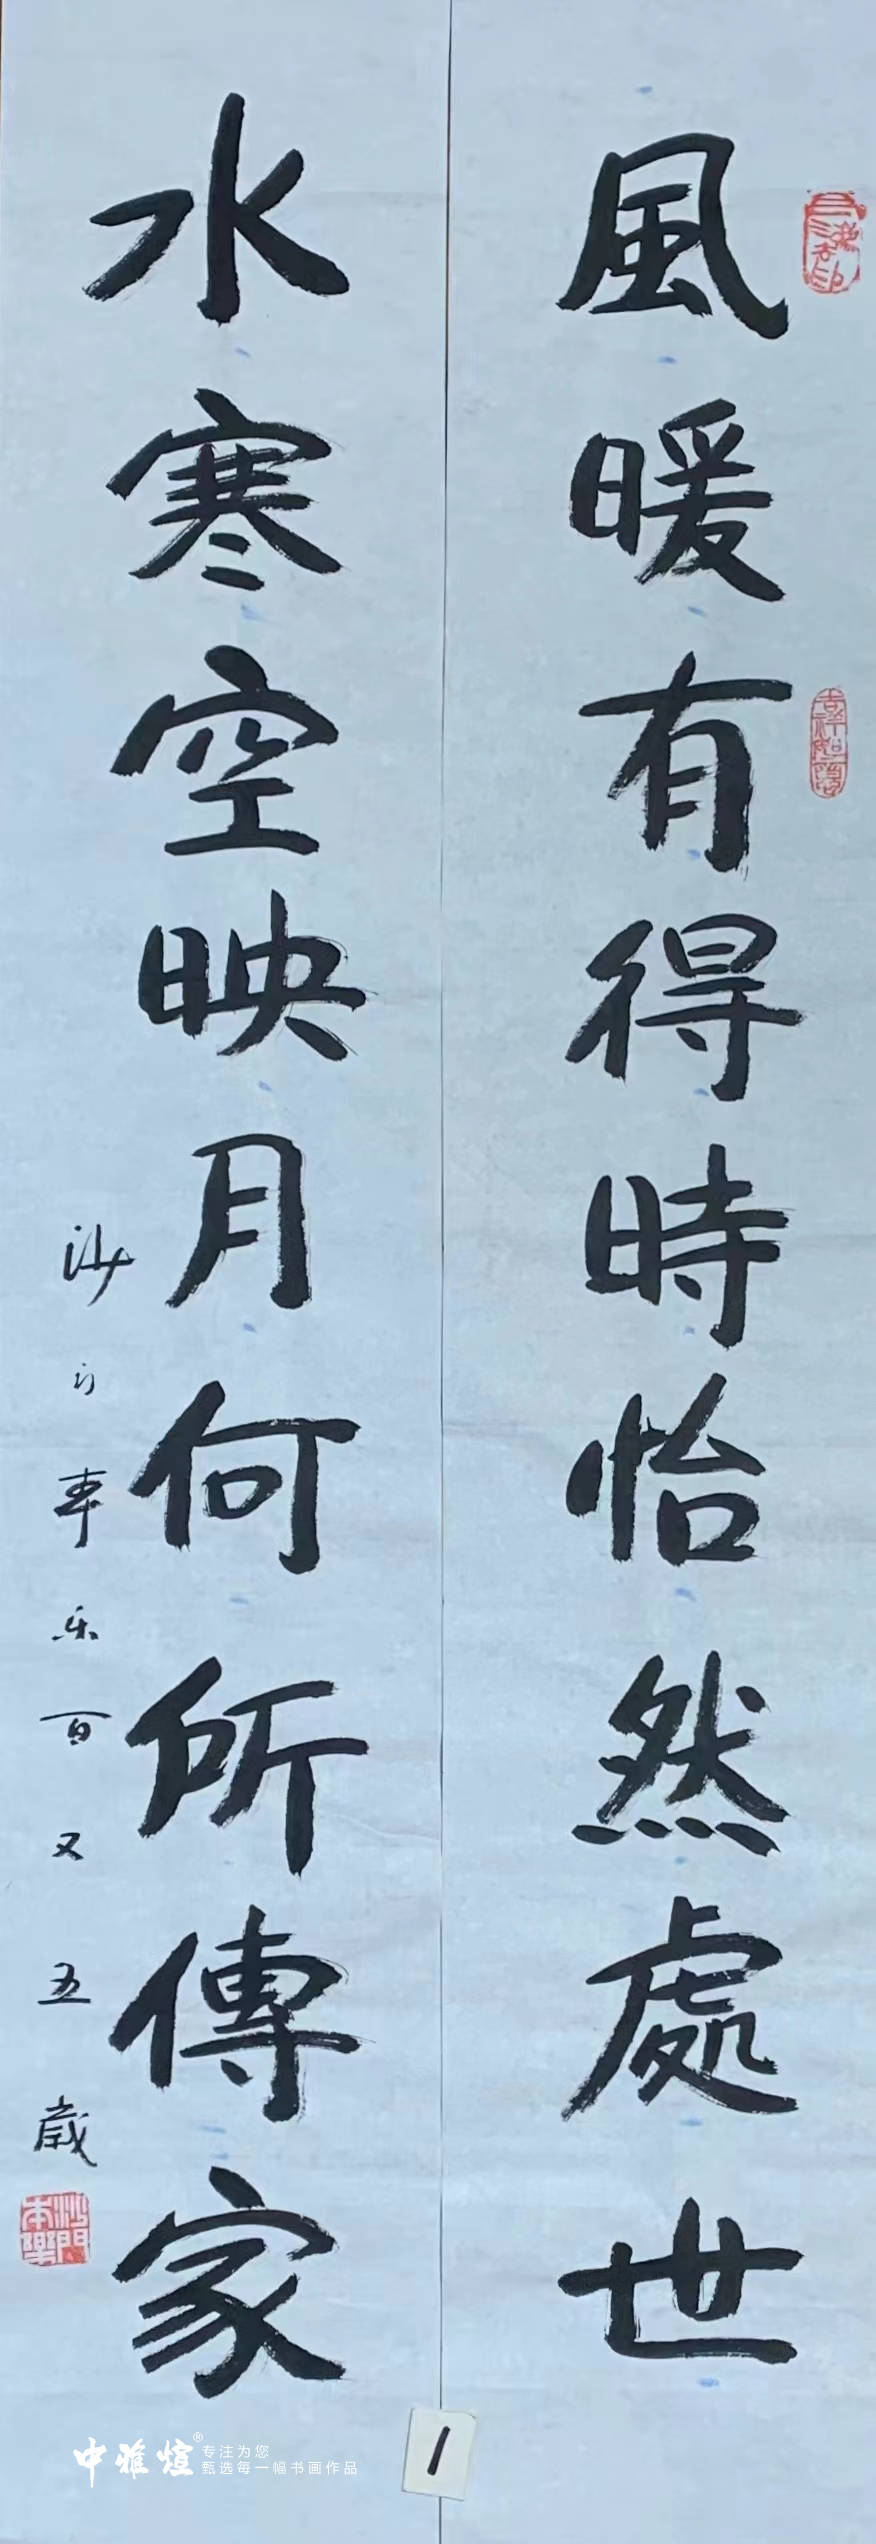 風暖有得時怡然處世
水寒空映月何所傳家
沙门本乐百又五歲
沙門本樂
1
中雅煊®
专注为您
甄选每一幅书画作品